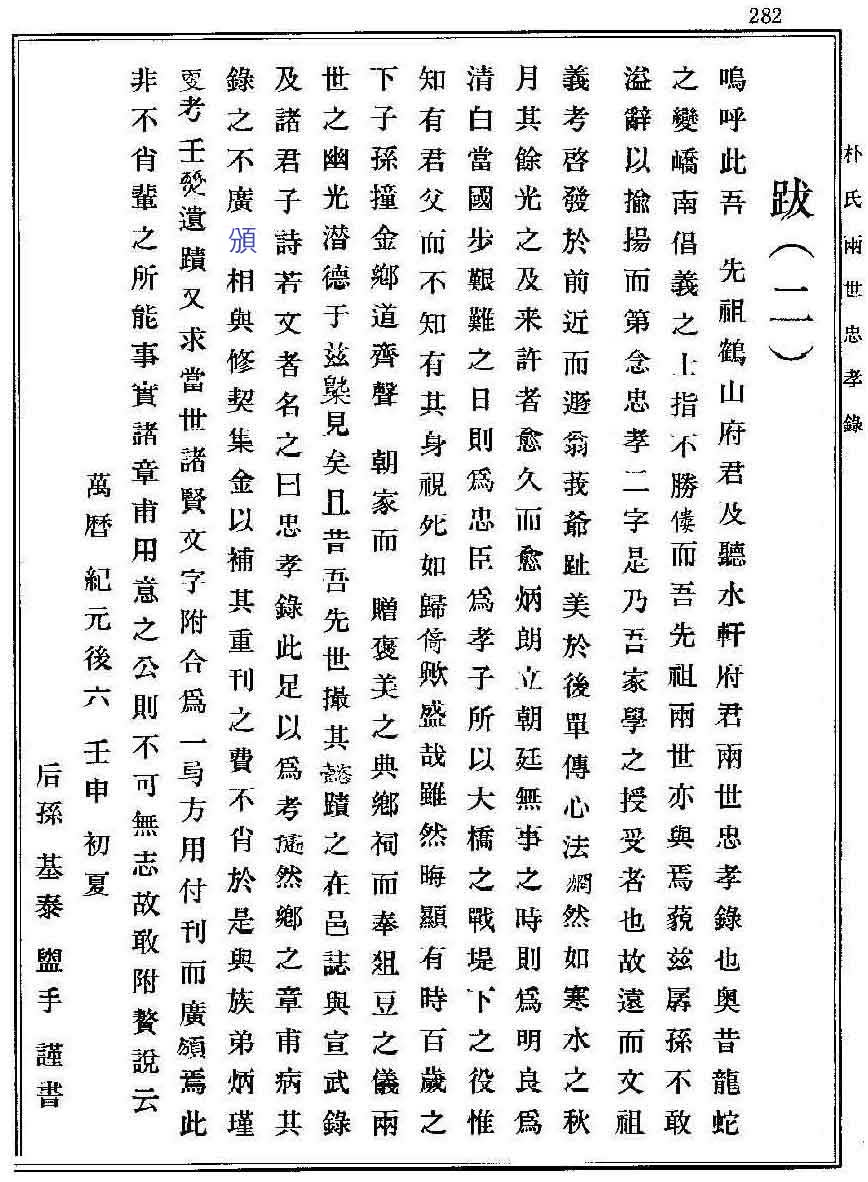 282
朴氏兩世忠孝錄
跋(二)
嗚呼此吾 先祖鶴山府君及聽水軒府君兩世忠孝錄也奥昔龍蛇
之變嶠南倡義之士指不勝僂而吾先祖兩世亦與焉藐兹孱孫不敢
溢辭以揄揚而第念忠孝二字是乃吾家學之授受者也故遠而文祖
義考啓發於前近而遯翁莪爺趾美於後單傳心法烱然如寒水之秋
月其餘光之及来許者愈久而愈炳朗立朝廷無事之時則爲明良爲
清白當國步艱難之日則爲忠臣爲孝子所以大橋之戰堤下之役惟
知有君父而不知有其身視死如歸猗歟盛哉雖然晦顯有時百歲之
下子孫撞金鄉道齊聲 朝家而 贈褒美之典鄉祠而奉俎豆之儀兩
世之幽光潜德于兹槩見矣且昔吾先世撮其懿蹟之在邑誌與宣武錄
及諸君子詩若文者名之曰忠孝錄此足以爲考 然鄉之章甫病其
錄之不廣頒相與修契集金以補其重刊之費不肖於是與族弟炳瑾
更考壬燹遺蹟又求當世諸賢文字附合爲一 方用付刊而廣頒焉此
非不肖輩之所能事實諸章甫用意之公則不可無志故敢附贅說云
萬曆 紀元後六 壬申 初夏
后孫 基泰 盥手 謹書